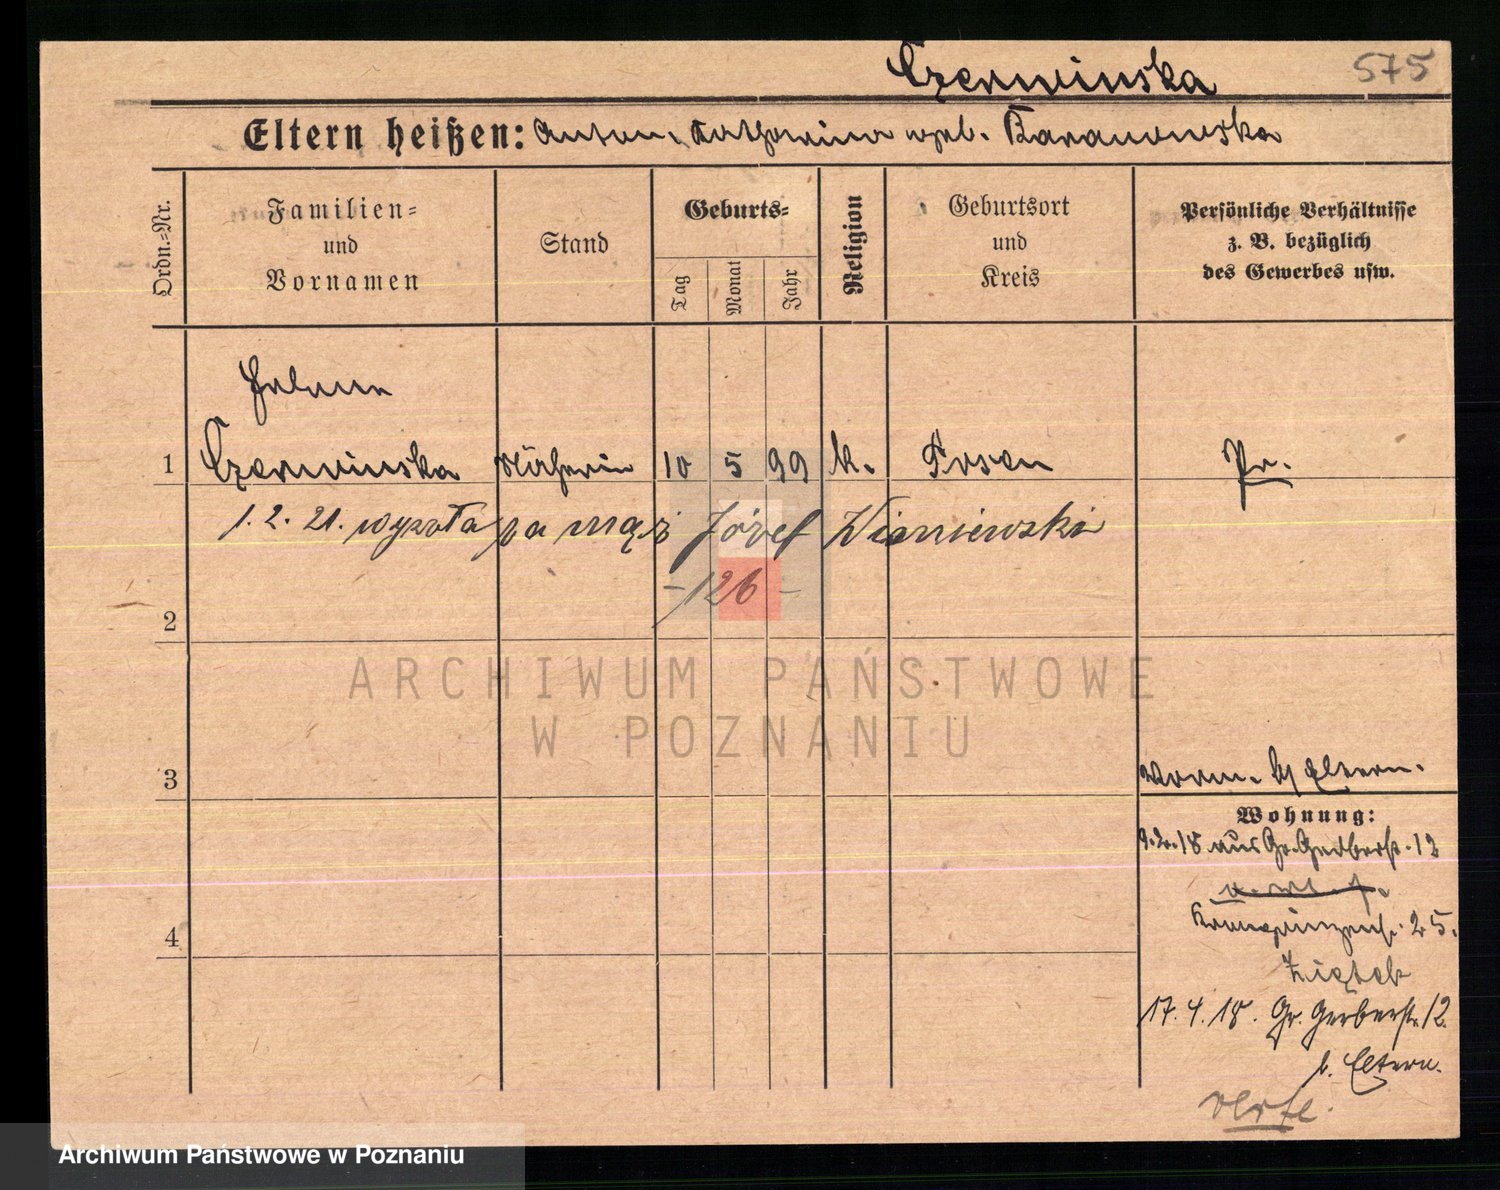 Czerwinska 575
Eltern heißen: Anton, Katharina geb. Baranowska
Ordn.-Nr.
Familien-
und
Vornamen
Stand
Geburts-
Tag
Monat
Jahr
Religion
Geburtsort
und
Kreis
Persönliche Verhältnisse
z. B. bezüglich
des Gewerbes usw.
Helena
1 Czerwinska Näherin 10 5 99 k. Posen Pr.
1. 2. 21. wyszła za mąż Józef Wiśniewski
-126-
2
ARCHIWUM PAŃSTWOWE
W POZNANIU
3
b/ Eltern.
Wohnung:
9.2.18 aus Gr. Gerberst. 12
Kronprinzenst. 25.
Ziętek
4
17. 4. 18. Gr. Gerberst. 12
b. Eltern.
Archiwum Państwowe w Poznaniu